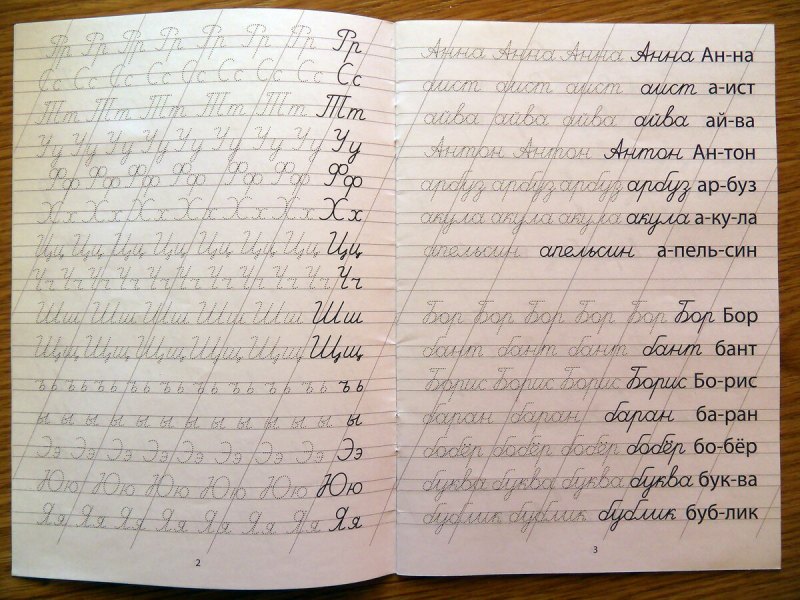 Рр Рр Рр Рр Рр Рр Рр Рр
Сс Сс Сс Сс Сс Сс Сс Сс Сс
Тт Тт Тт Тт Тт Тт
Уу Уу Уу Уу Уу Уу Уу Уу Уу
Фф Фф Фф Фф Фф Фф Фф
Хх Хх Хх Хх Хх Хх Хх Хх
Цц Цц Цц Цц Цц Цц Цц Цц
Чч Чч Чч Чч Чч Чч Чч Чч Чч Чч Чч
Шш Шш Шш Шш Шш Шш
Щщ Щщ Щщ Щщ Щщ Щщ
ъь ъь ъь ъь ъь ъь ъь ъь ъь
ы ы ы ы ы ы ы ы ы ы
Ээ Ээ Ээ Ээ Ээ Ээ Ээ Ээ Ээ
Юю Юю Юю Юю Юю Юю
Яя Яя Яя Яя Яя Яя Яя Яя
2
Анна Анна Анна Анна Ан-на
аист аист аист аист а-ист
айва айва айва айва ай-ва
Антон Антон Антон Ан-тон
арбуз арбуз арбуз арбуз ар-буз
акула акула акула акула а-ку-ла
апельсин апельсин а-пель-син
Бор Бор Бор Бор Бор Бор Бор
бант бант бант бант бант
Борис Борис Борис Борис Бо-рис
баран баран баран ба-ран
бобёр бобёр бобёр бобёр бо-бёр
буква буква буква буква бук-ва
бублик бублик бублик буб-лик
3